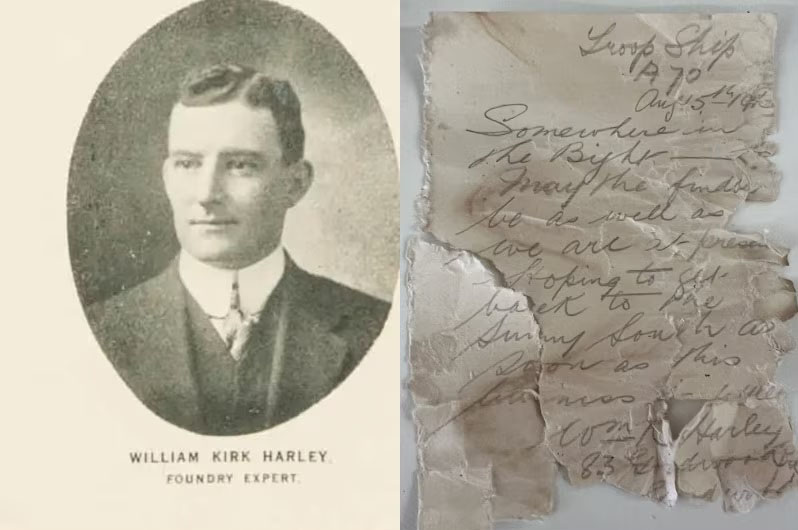 WILLIAM KIRK HARLEY,
FOUNDRY EXPERT.
Troop Ship
A 70
Aug 15th
Somewhere in
the Bight —
May the finder
be as well as
we are at present
Hoping to get
back to the
Sunny South as
soon as this
business is
Wm K Harley
83